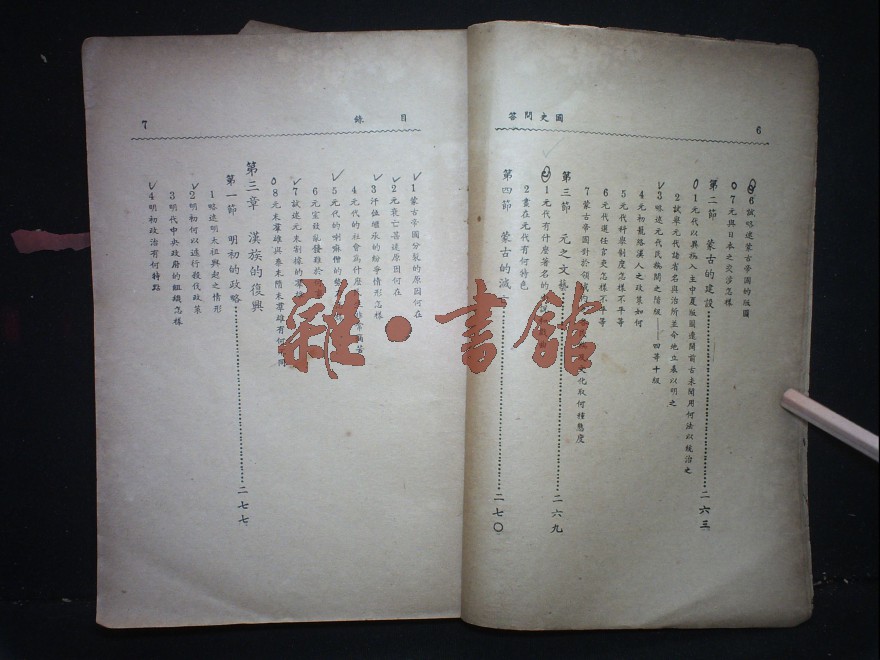 國史問答
6
6試略述蒙古帝國的版圖
7元與日本之交涉怎樣
第二節 蒙古的建設 二六三
1元代以異族入主中夏版圖遠闢前古未聞用何法以統治之
2試舉元代諸省名與治所並今地立表以明之
3略述元代民族間之階級——四等十級
4元初籠絡漢人之政策如何
5元代科舉制度怎樣不平等
6元代選任官吏怎樣不平等
7蒙古帝國對於領域的文化取何種態度
第三節 元之文藝 二六九
1元代有什麼著名的
2畫在元代有何特色
第四節 蒙古的滅 二七〇
目錄
7
1蒙古帝國分裂的原因何在
2元衰亡甚速原因何在
3汗位繼承的紛爭情形怎樣
4元代的社會爲什麼
5元代的喇嘛僧的
6元室致亂發難於
7試述元末割據的羣
8元末羣雄與秦末隋末羣雄有何
第三章 漢族的復興
第一節 明初的政略 二七七
1略述明太祖興起之情形
2明初何以進行殺伐政策
3明代中央政府的組織怎樣
4明初政治有何特點
雜·書館